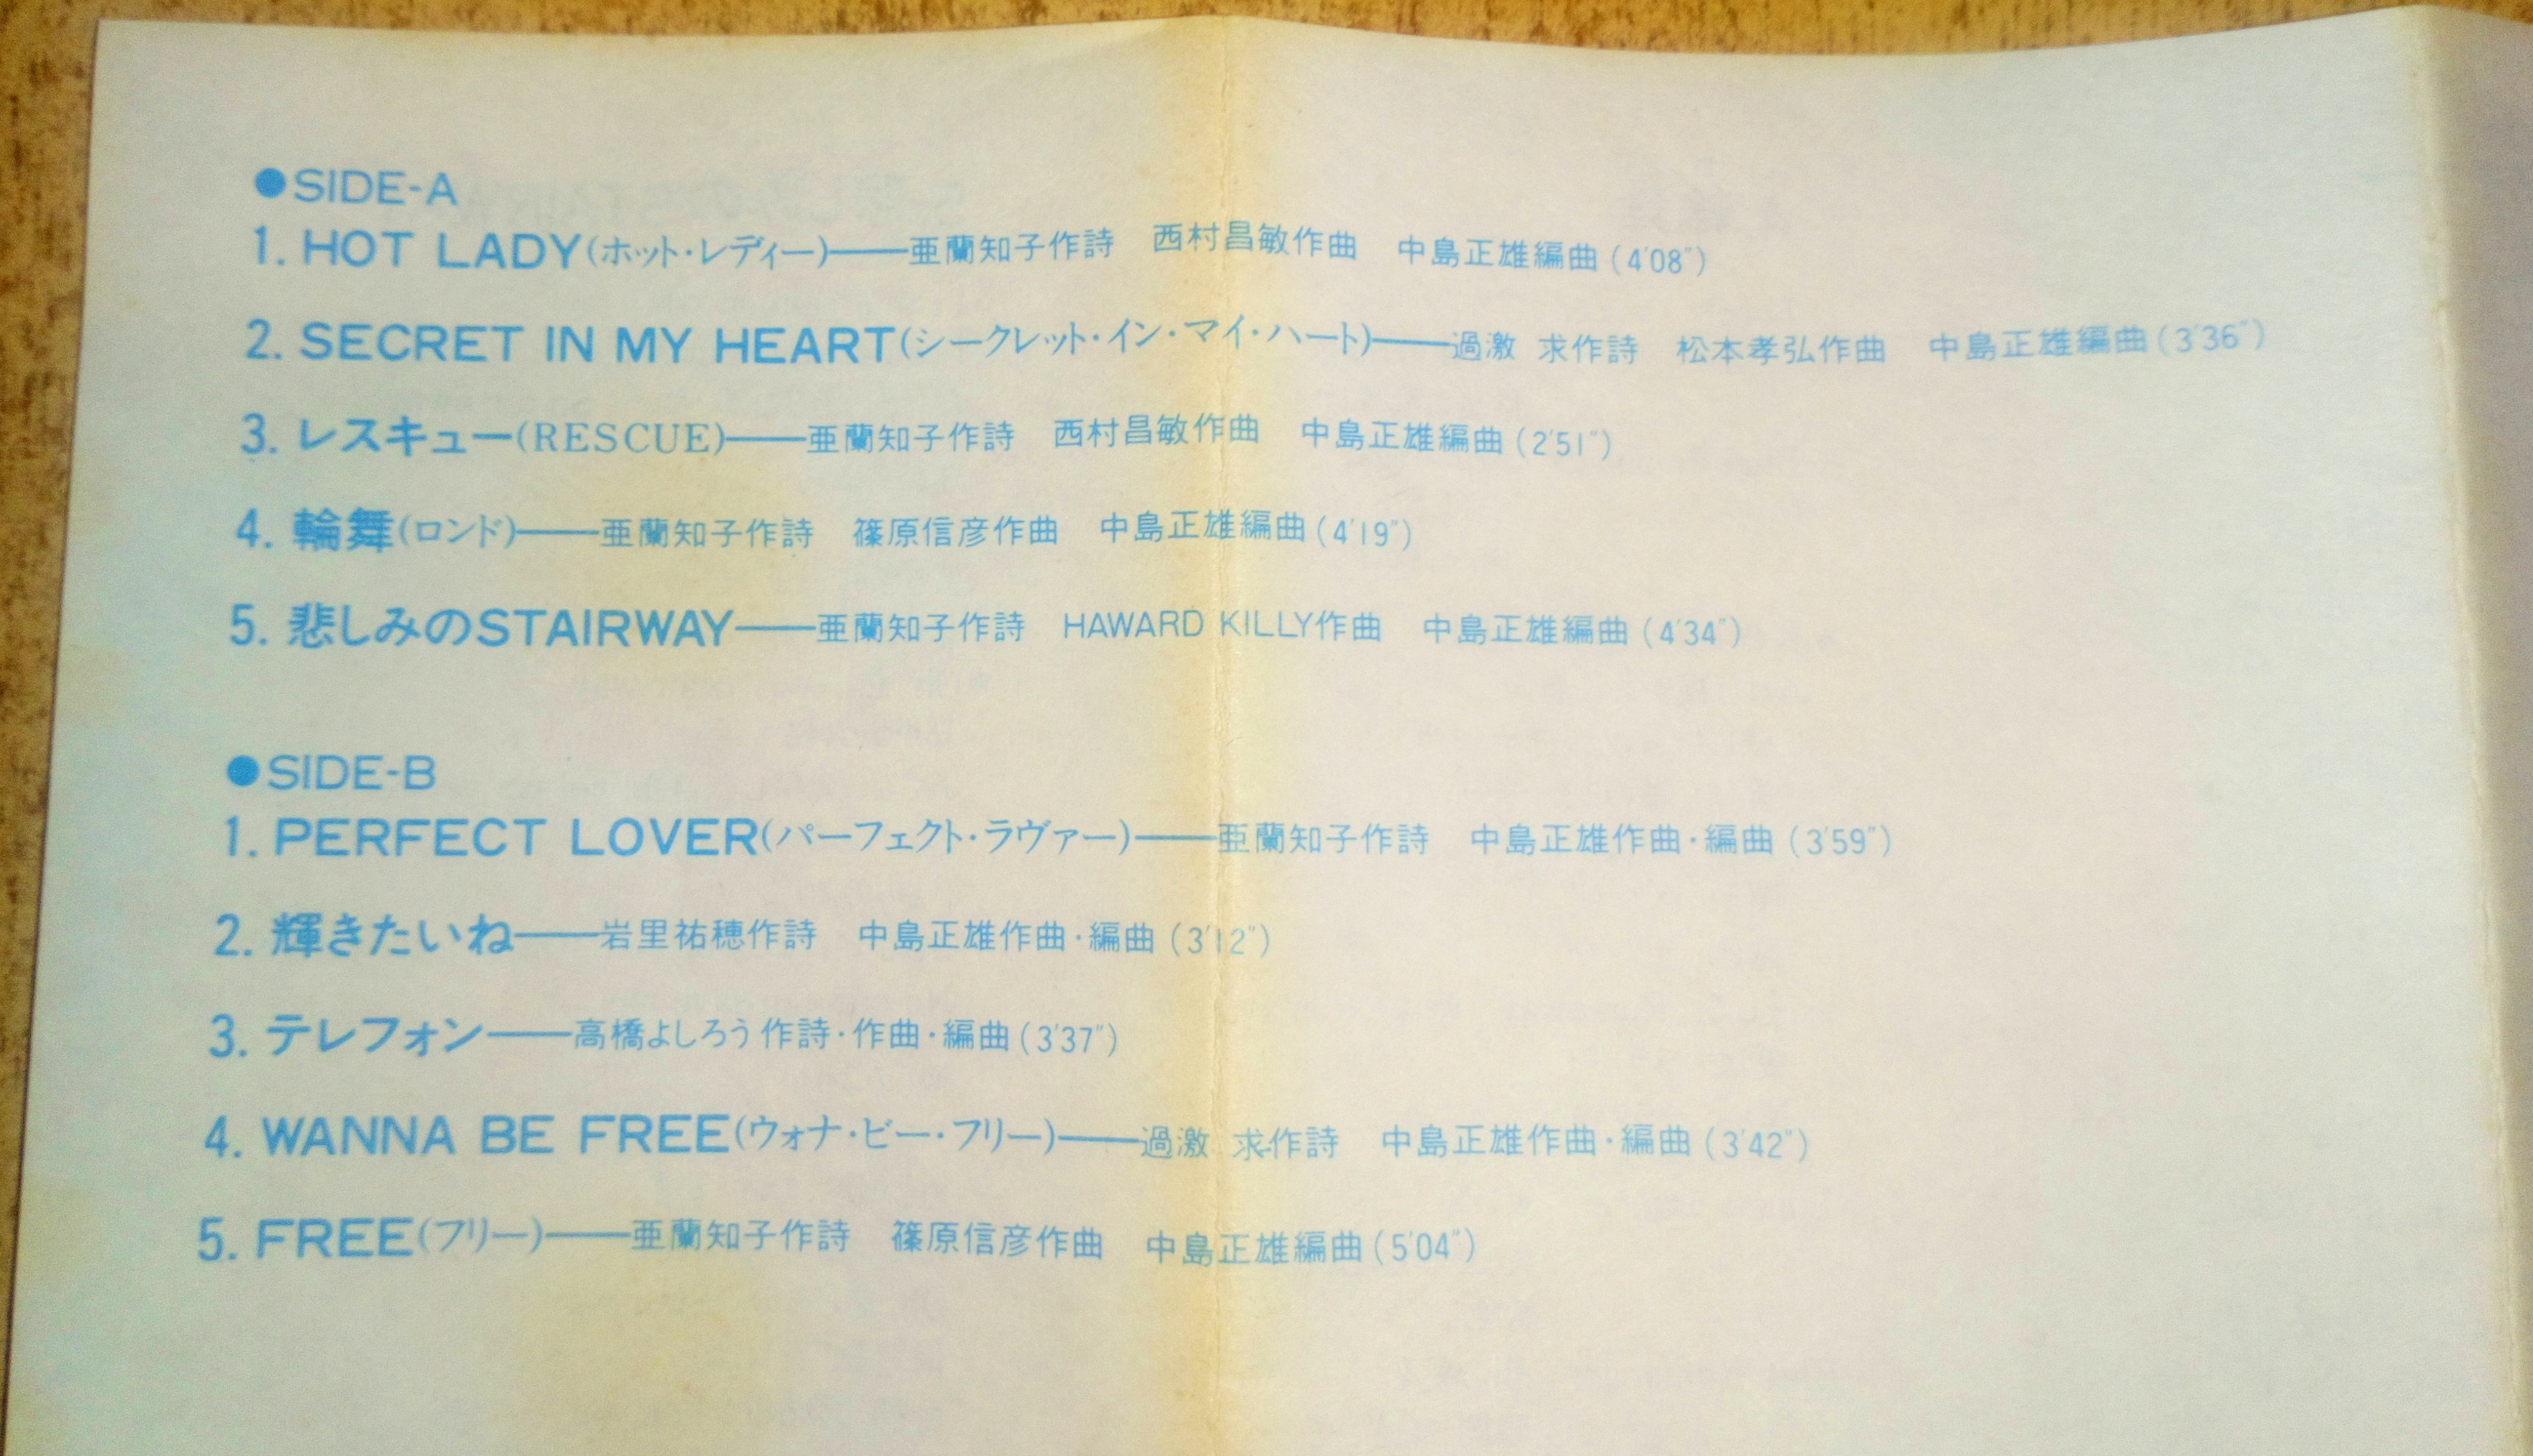 ●SIDE-A
1. HOT LADY(ホット・レディー)──亜蘭知子作詩 西村昌敏作曲 中島正雄編曲(4'08")
2. SECRET IN MY HEART(シークレット・イン・マイ・ハート)──過激 求作詩 松本孝弘作曲 中島正雄編曲(3'36")
3. レスキュー(RESCUE)──亜蘭知子作詩 西村昌敏作曲 中島正雄編曲(2'51")
4. 輪舞(ロンド)──亜蘭知子作詩 篠原信彦作曲 中島正雄編曲(4'19")
5. 悲しみのSTAIRWAY──亜蘭知子作詩 HAWARD KILLY作曲 中島正雄編曲(4'34")
●SIDE-B
1. PERFECT LOVER(パーフェクト・ラヴァー)──亜蘭知子作詩 中島正雄作曲・編曲(3'59")
2. 輝きたいね──岩里祐穂作詩 中島正雄作曲・編曲(3'12")
3. テレフォン──高橋よしろう作詩・作曲・編曲(3'37")
4. WANNA BE FREE(ウォナ・ビー・フリー)──過激 求作詩 中島正雄作曲・編曲(3'42")
5. FREE(フリー)──亜蘭知子作詩 篠原信彦作曲 中島正雄編曲(5'04")